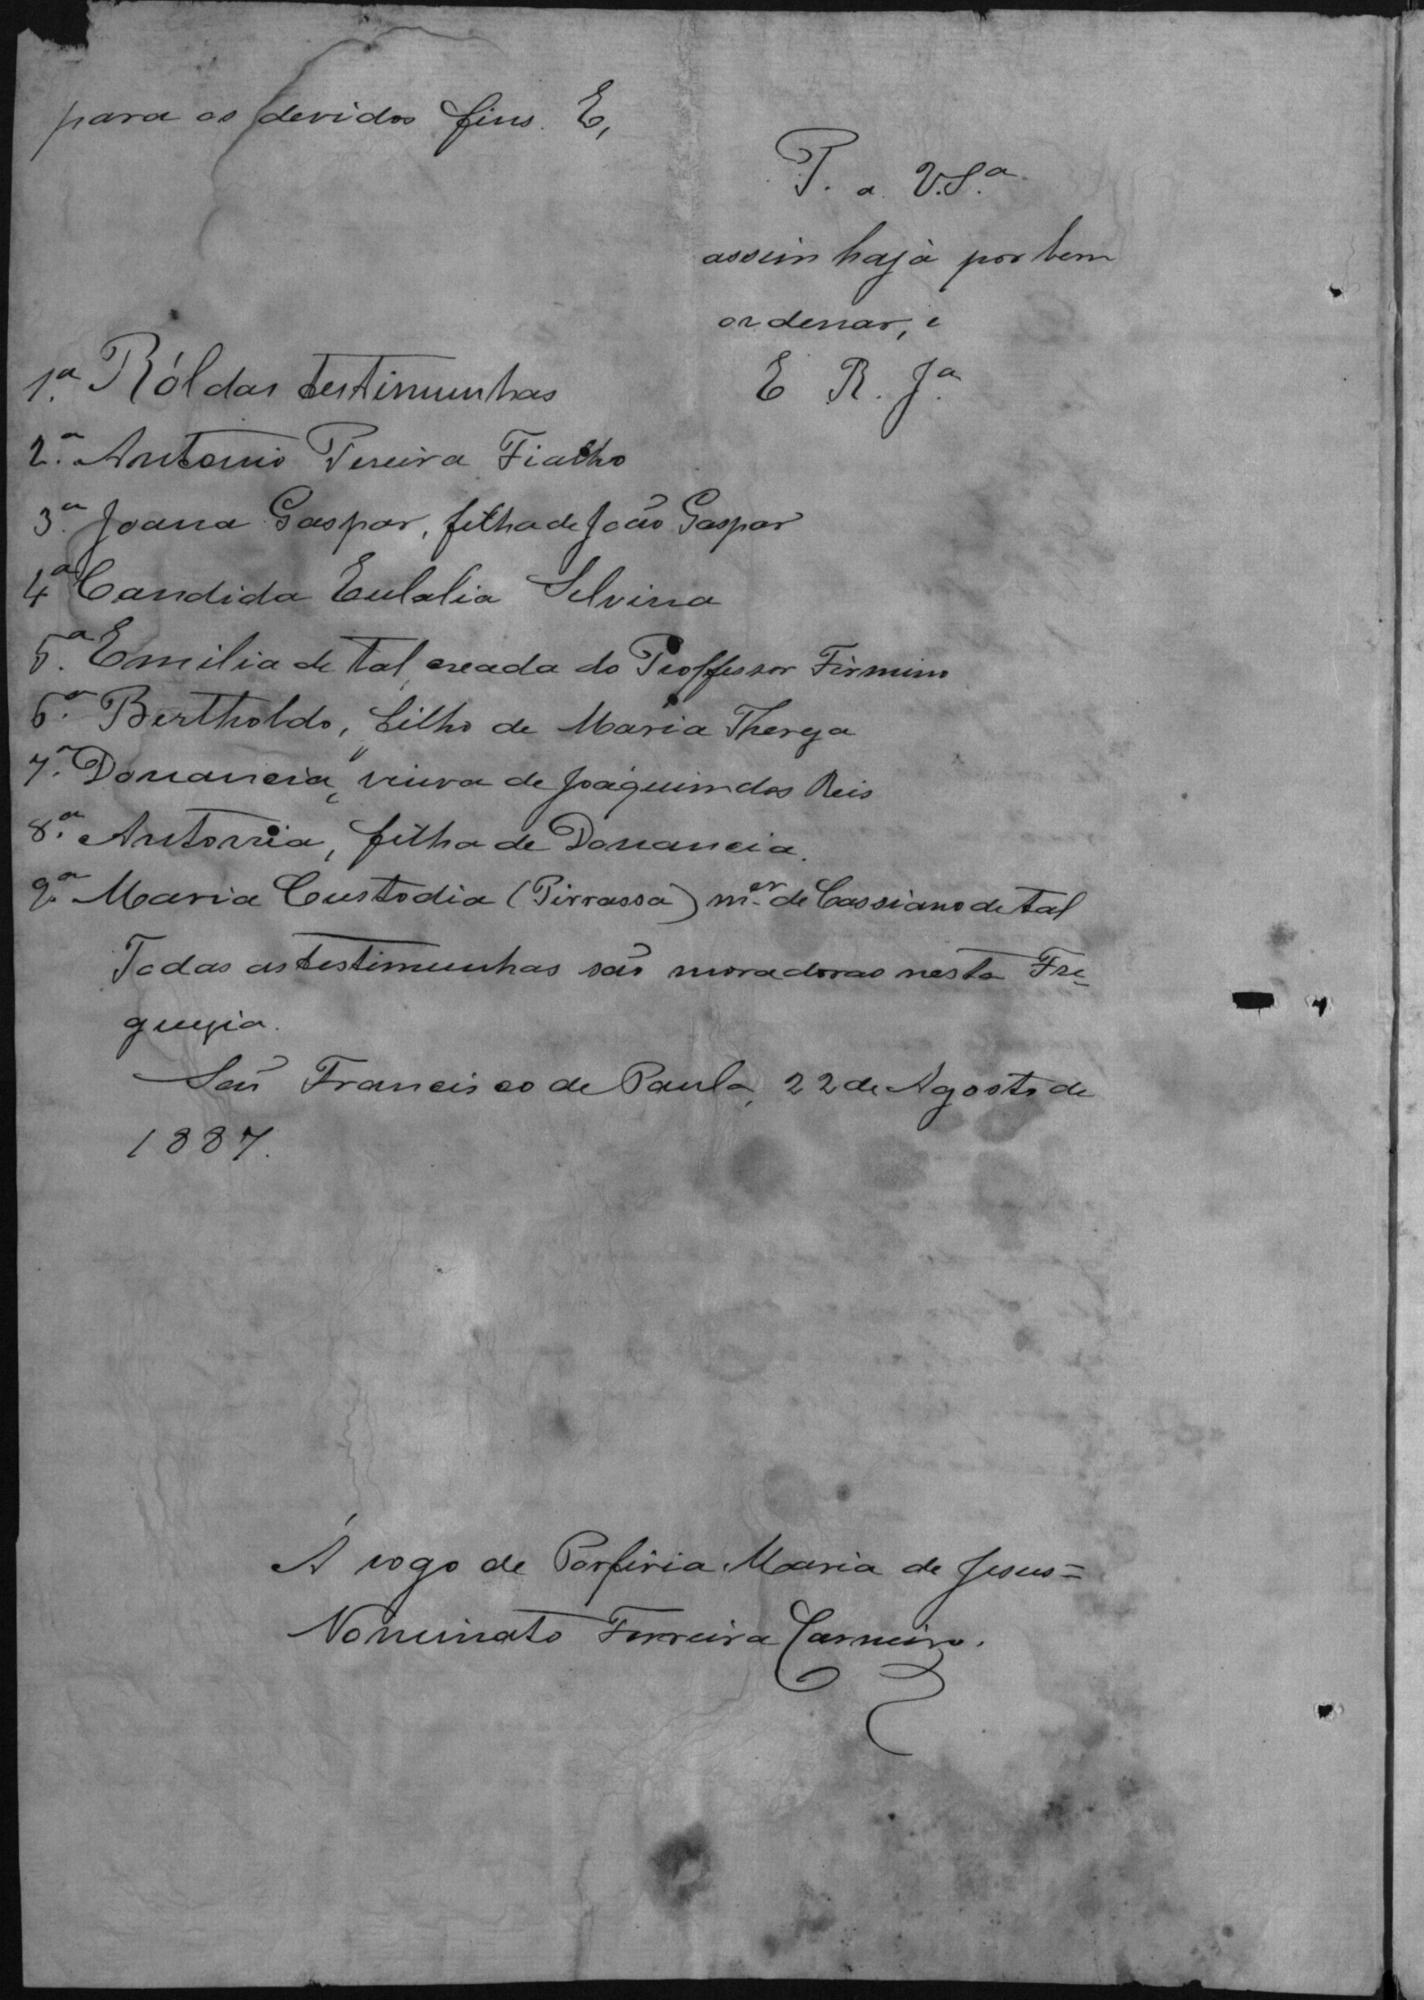 para os devidos fins. E,
P. a V.S.ª
assim haja por bem
ordenar, e
E R. J.ª
1.ª Ról das testimunhas
2.ª Antonio Pereira Fialho
3.ª Joana Gaspar, filha de João Gaspar
4ª Candida Eulalia Silvina
5.ª Emilia de tal, creada do Professor Firmino
6.ª Bertholdo, filho de Maria Thereza
7.ª Donancia, viuva de Joaquim dos Reis
8.ª Antonia, filha de Donancia.
9.ª Maria Custodia (Pirrassa) m.er de Cassiano de tal
Todas as testimunhas são moradoras nesta Fre-
guezia.
São Francisco de Paula, 22 de Agosto de
1887.
Á rogo de Porfiria Maria de Jesus=
Nominato Ferreira Carneiro.